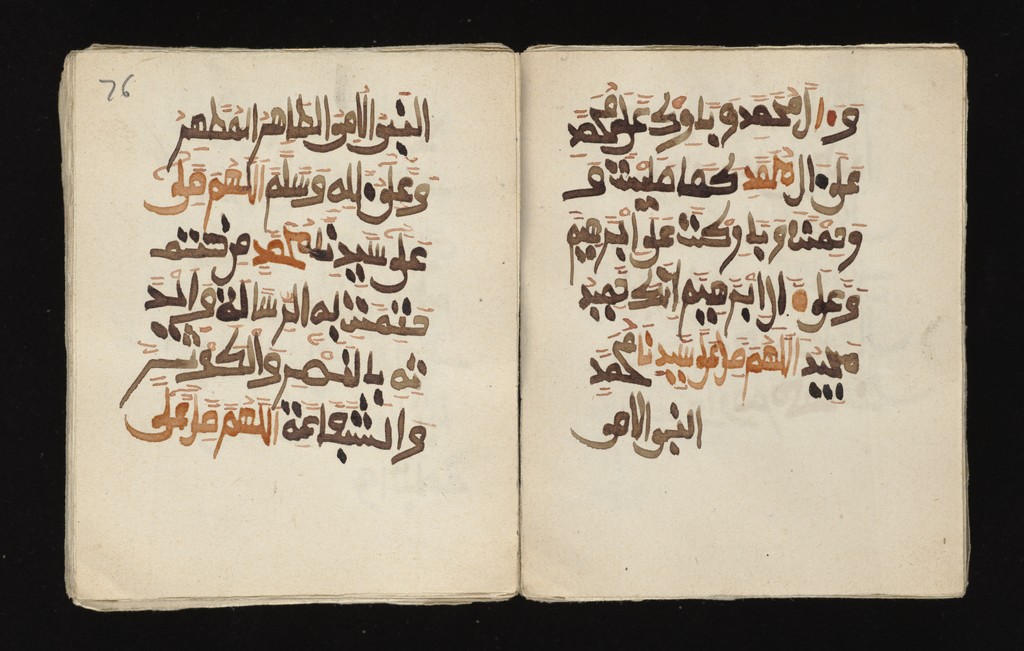 وءال محمد وبارك على محمد
على ءال محمد كما صليت و
ورحمت وباركت على ابرهيم
وعلى ءال ابرهيم انك حميد
مجيد اللهم صل على سيدنا محمد
النبي الامي
76
النبي الامي الطاهر المطهر
وعلى ءاله وسلم اللهم صل
على سيدنا محمد من ختمت
ختمت به الرسالة وايد
ته بالنصر والكوثر
والشفاعة اللهم صل على